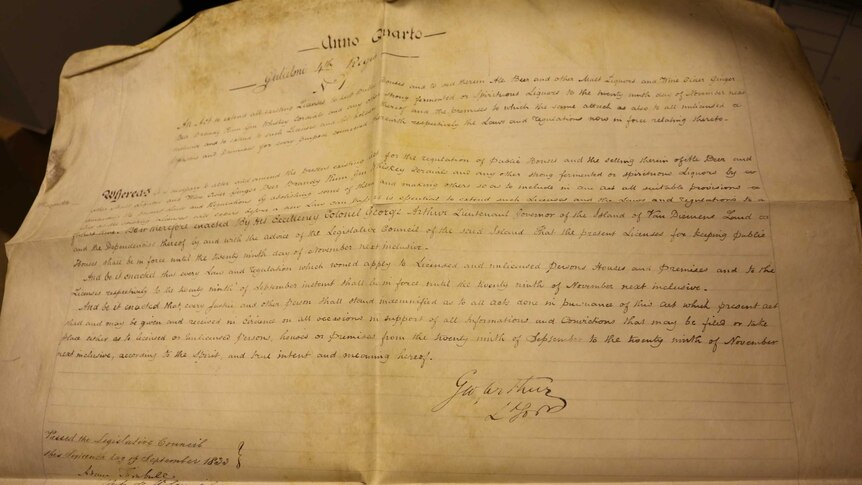 Anno Quarto
Gulielmi 4th Regis
No 1
An Act to extend all existing Licenses to keep Public Houses and to sell therein Ale Beer and other Malt Liquors and Wine Cider Ginger
Beer Brandy Rum Gin Whiskey Cordials and any other strong fermented or Spirituous Liquors to the twenty ninth day of November next
and to extend to such Licenses and the persons thereof and the Premises to which the same attach as also to all unlicensed
persons and Premises for every purpose connected therewith respectively the Laws and Regulations now in force relating thereto.
Whereas it is necessary to alter and amend the present existing for the regulation of Public Houses and the selling therein of Ale Beer and
other Malt Liquors and Wine Cider Ginger Beer Brandy Rum Gin Whiskey Cordials and any other strong fermented or spirituous Liquors by
Regulations by abolishing some of them and making others so as to include in one act all suitable provisions
before a new Law can be it is expedient to extend such Licenses and the Laws and Regulations to a
future time. Be it therefore enacted By His Excellency Colonel George Arthur Lieutenant Governor of the Island of Van Diemens Land
and the Dependencies thereof by and with the advice of the Legislative Council of the said Island That the present Licenses for keeping Public
Houses shall be in force until the twenty ninth day of November next inclusive.
And be it enacted that every Law and Regulation which would apply to Licensed and unlicensed Persons Houses and premises and to the
Licenses respectively to the twenty ninth of September instant shall be in force until the twenty ninth of November next inclusive.
And be it enacted that, every Justice and other Person shall stand indemnified as to all acts done in pursuance of this Act which present act
shall and may be given and received in Evidence on all occasions in support of all Informations and Convictions that may be filed or take
place either as to licensed or unlicensed Persons, houses or premises from the twenty ninth of September to the twenty ninth of November
next inclusive, according to the Spirit, and true intent and meaning hereof.
Geo Arthur
Passed the Legislative Council
this day of September 1833
Adam Turnbull